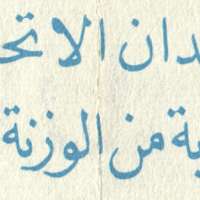 دان الاتح
ة من الوزنة